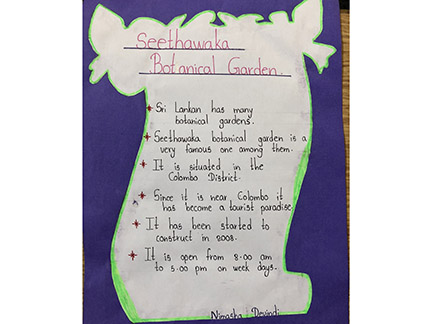 Seethawaka
Botanical Garden.
Sri Lankan has many
botanical gardens.
Seethawaka botanical garden is a
very famous one among them.
It is situated in the
Colombo District.
Since it is near Colombo it
has become a tourist paradise.
It has been started to
construct in 2008.
It is open from 8.00 am
to 5.00 pm on week days.